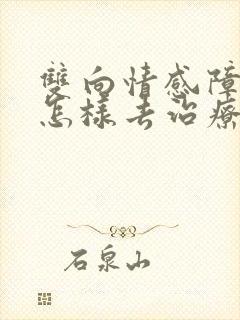 雙向情感障
怎樣去治療
石泉山